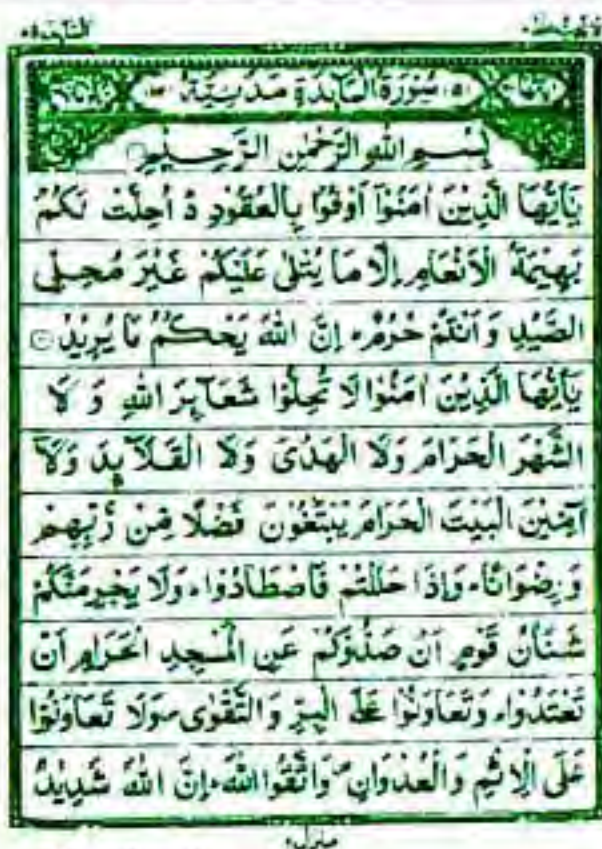 المائدة ٥
(٥) سُوْرَةُ الْمَآئِدَةِ مَدَنِيَّةٌ
بِسْمِ اللهِ الرَّحْمٰنِ الرَّحِيْمِ
يٰٓاَيُّهَا الَّذِيْنَ اٰمَنُوْٓا اَوْفُوْا بِالْعُقُوْدِ ؕ اُحِلَّتْ لَكُمْ
بَهِيْمَةُ الْاَنْعَامِ اِلَّا مَا يُتْلٰى عَلَيْكُمْ غَيْرَ مُحِلِّى
الصَّيْدِ وَ اَنْتُمْ حُرُمٌ ؕ اِنَّ اللهَ يَحْكُمُ مَا يُرِيْدُ
يٰٓاَيُّهَا الَّذِيْنَ اٰمَنُوْا لَا تُحِلُّوْا شَعَآئِرَ اللهِ وَ لَا
الشَّهْرَ الْحَرَامَ وَلَا الْهَدْىَ وَلَا الْقَلَآئِدَ وَلَآ
آٰمِّيْنَ الْبَيْتَ الْحَرَامَ يَبْتَغُوْنَ فَضْلًا مِّنْ رَّبِّهِمْ
وَ رِضْوَانًا ؕ وَاِذَا حَلَلْتُمْ فَاصْطَادُوْا ؕ وَلَا يَجْرِمَنَّكُمْ
شَنَاٰنُ قَوْمٍ اَنْ صَدُّوْكُمْ عَنِ الْمَسْجِدِ الْحَرَامِ اَنْ
تَعْتَدُوْا ۘ وَتَعَاوَنُوْا عَلَى الْبِرِّ وَالتَّقْوٰى ۪ وَلَا تَعَاوَنُوْا
عَلَى الْاِثْمِ وَالْعُدْوَانِ ۪ وَاتَّقُوا اللهَ ؕ اِنَّ اللهَ شَدِيْدُ